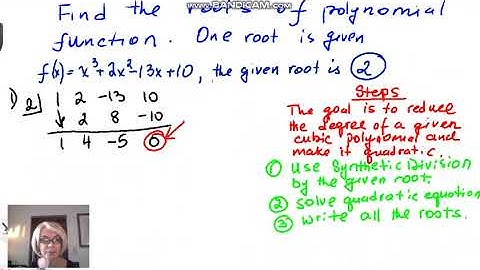 www.BANDICAM.com
Find the roots of polynomial
function. One root is given
f(x)=x³+2x²-13x+10, the given root is 2
1) 2 1 2 -13 10
2 8 -10
1 4 -5 0
Steps
The goal is to reduce
the degree of a given
cubic polynomial and
make it quadratic.
1 Use Synthetic Division
by the given root.
2 Solve quadratic equation
3 Write all the roots.